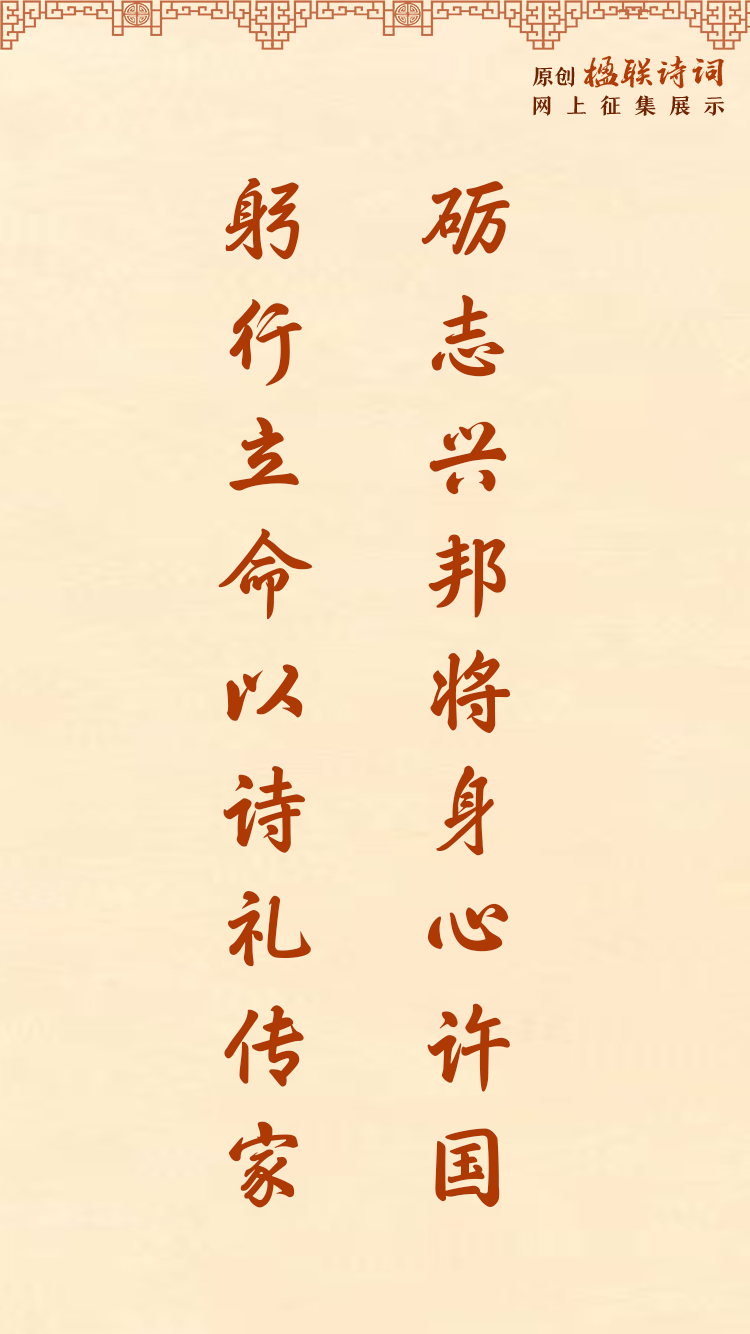 原创 楹联诗词
网上征集展示
砺志兴邦将身心许国
躬行立命以诗礼传家